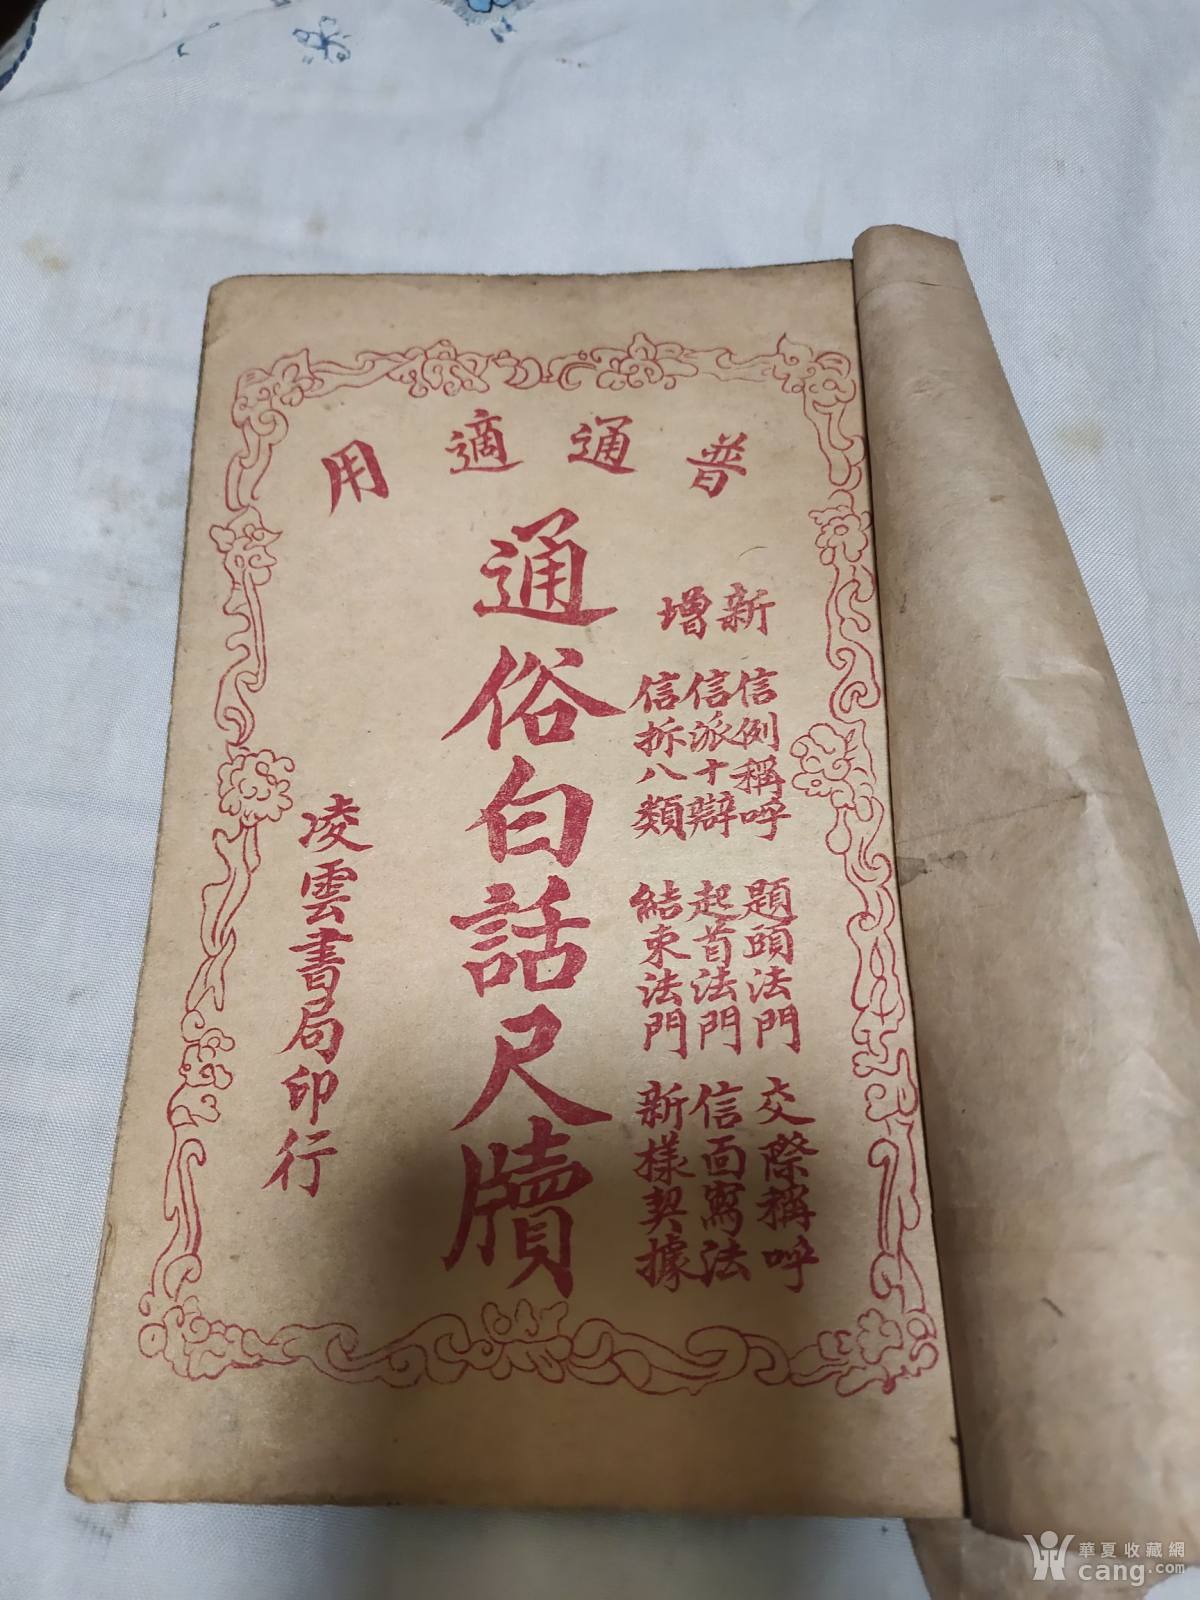 普通適用
新增
信例稱呼 題頭法門 交際稱呼
信派十辯 起首法門 信面寫法
信拆八類 結束法門 新樣契據
通俗白話尺牘
凌雲書局印行
華夏收藏網
cang.com